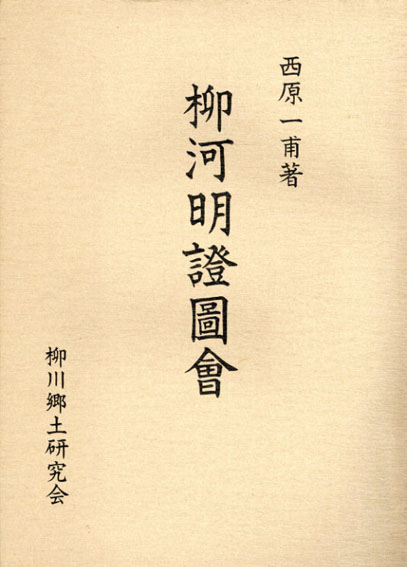 西原一甫著
柳河明證圖會
柳川郷土研究会